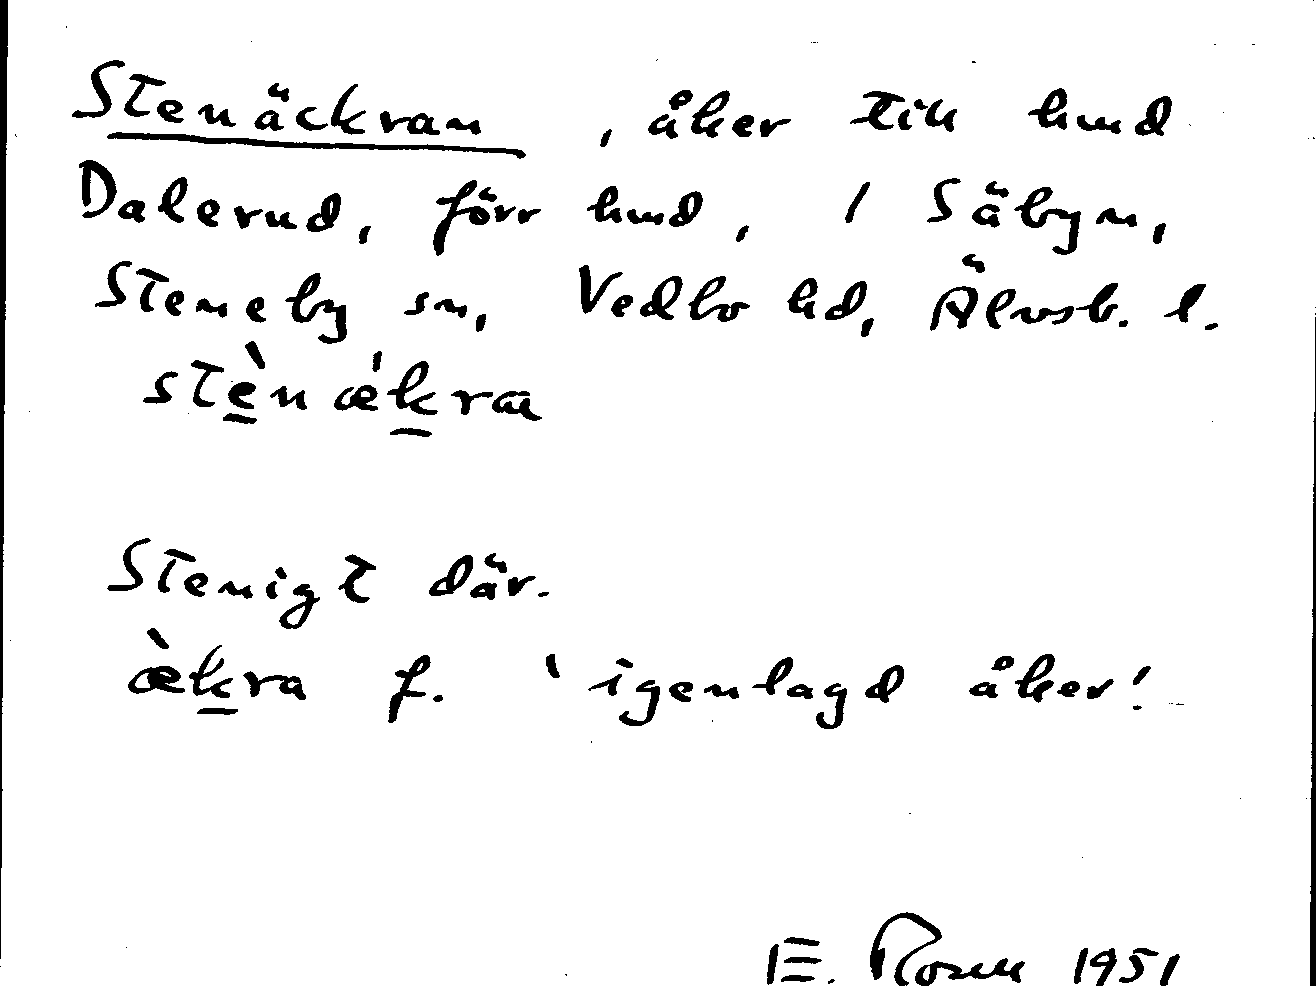 Stenäckran, åker till hmd
Dalerud, förr hmd, / Säbyn,
Steneby sn, Vedbo hd, Älvsb. l.
stènækra
Stenigt där.
æ̀kra f. 'igenlagd åker'.
E. Rosen 1951